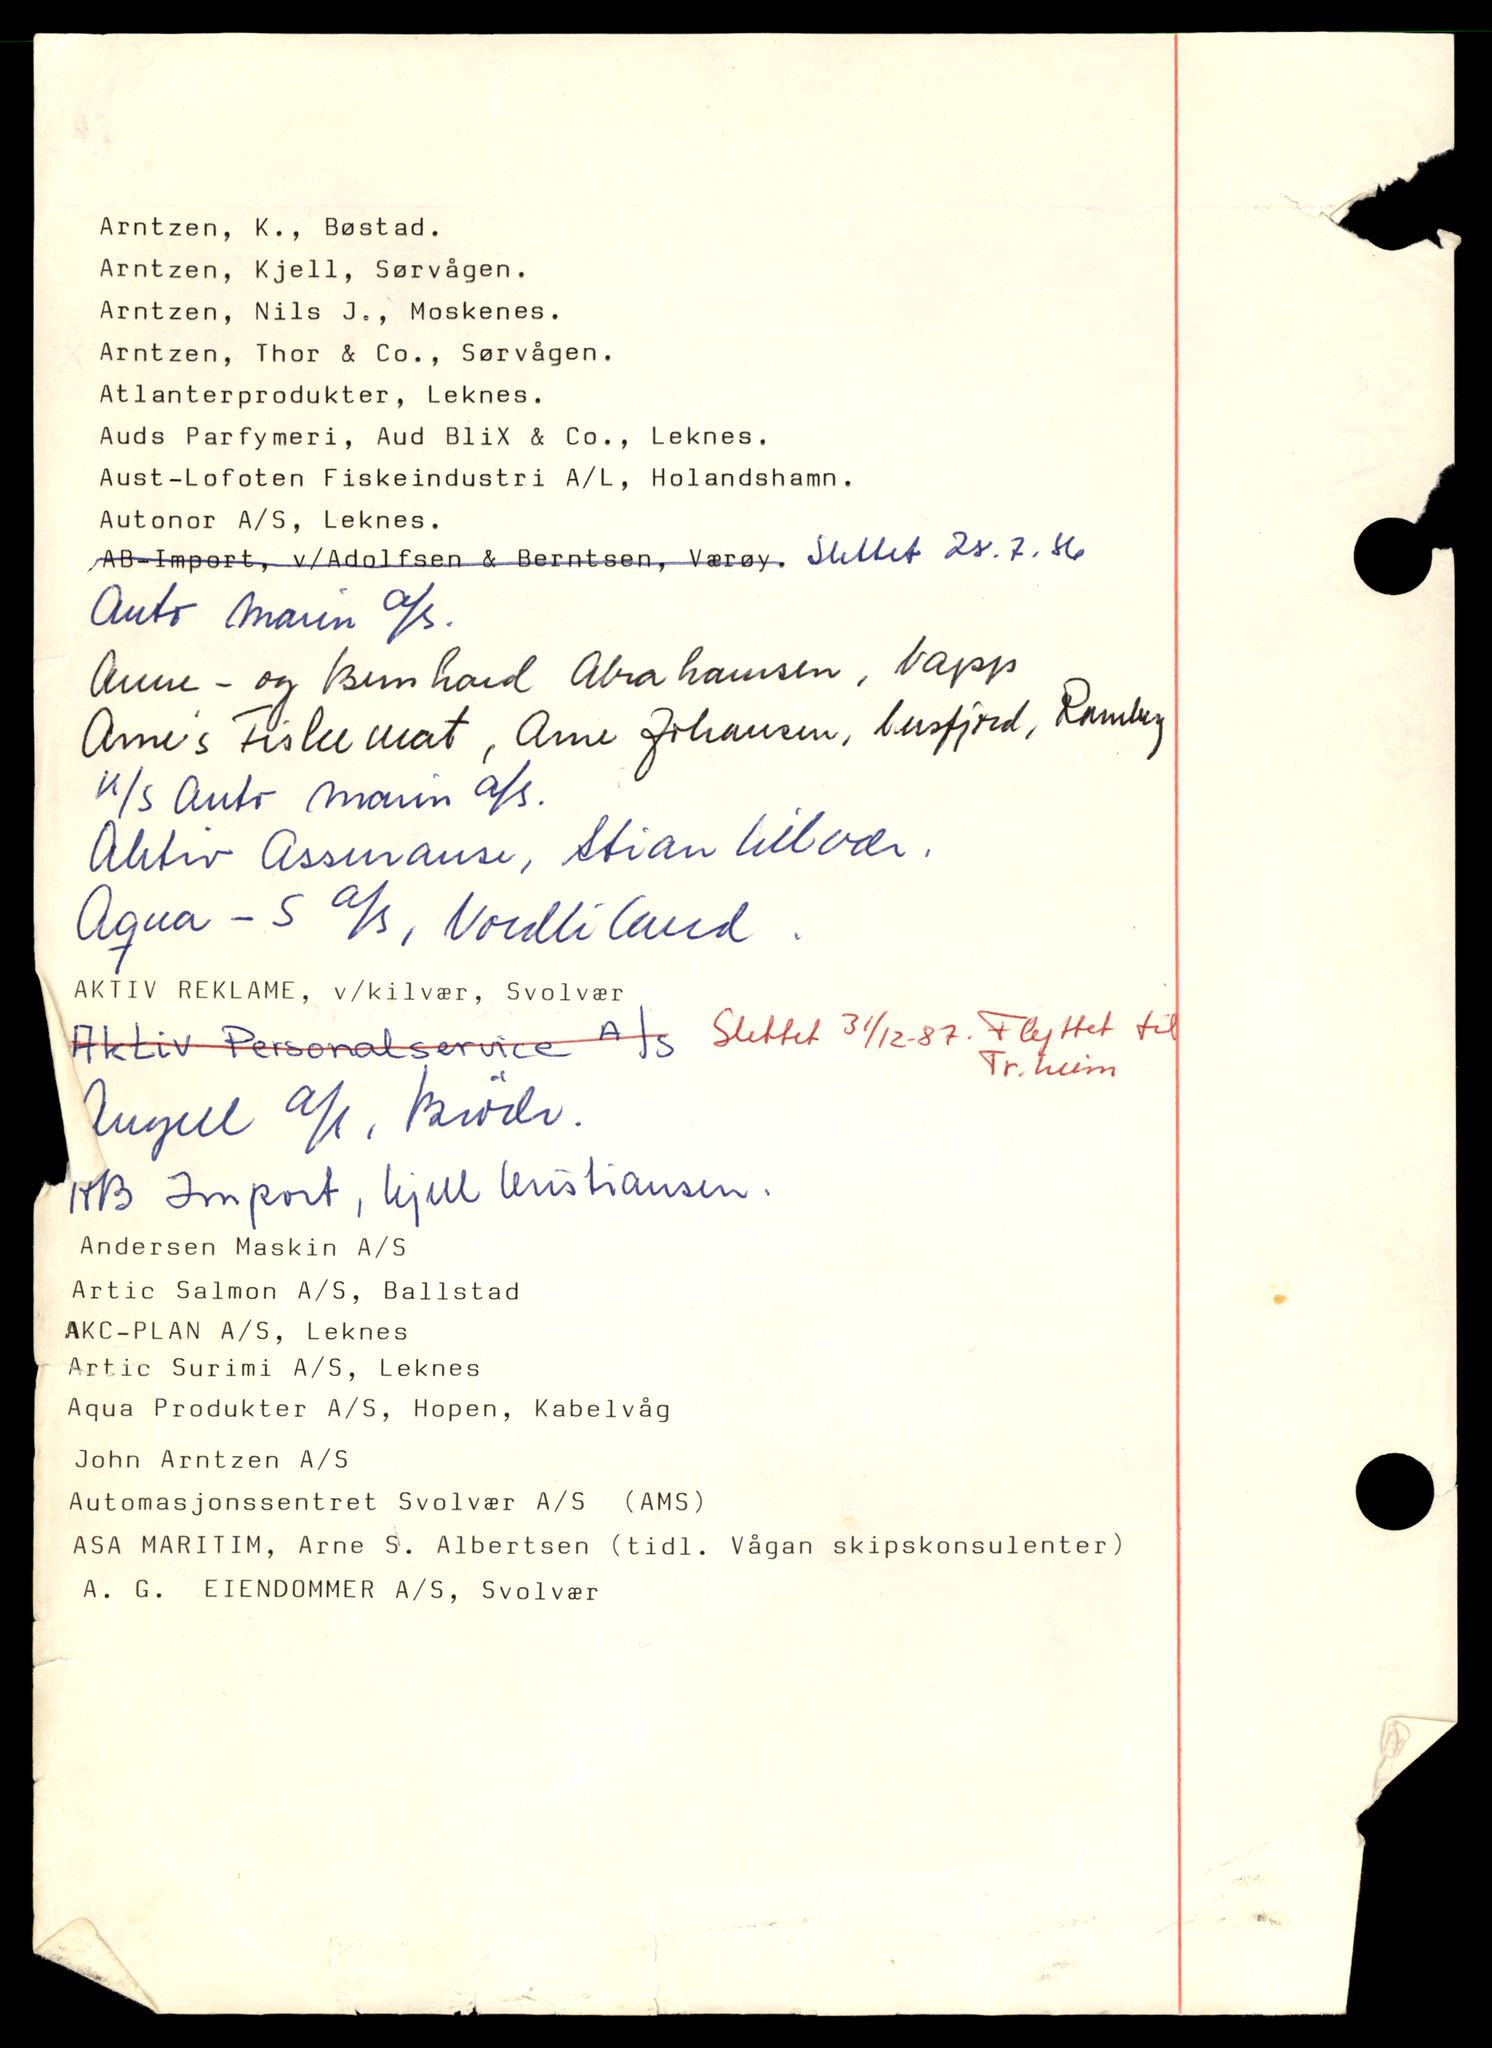 Arntzen, K., Bøstad.
Arntzen, Kjell, Sørvågen.
Arntzen, Nils J., Moskenes.
Arntzen, Thor & Co., Sørvågen.
Atlanterprodukter, Leknes.
Auds Parfymeri, Aud BliX & Co., Leknes.
Aust-Lofoten Fiskeindustri A/L, Holandshamn.
Autonor A/S, Leknes.
AB-Import, v/Adolfsen & Berntsen, Værøy. Slettet 28.7.86
Auto Marin a/s.
Anne- og Bernhard Abrahamsen, Napp
Arne's Fiskemat, Arne Johansen, Nusfjord, Ramberg
K/S Auto Marin a/s.
Aktiv Assuranse, Stian Kilvær.
Aqua-S a/s, Nordliland.
AKTIV REKLAME, v/kilvær, Svolvær
Aktiv Personalservice A/S Slettet 31/12-87. Flyttet til
Tr.heim
Angell a/s, Brödr.
Import, Kjell Kristiansen.
Andersen Maskin A/S
Artic Salmon A/S, Ballstad
AKC-PLAN A/S, Leknes
Artic Surimi A/S, Leknes
Aqua Produkter A/S, Hopen, Kabelvåg
John Arntzen A/S
Automasjonssentret Svolvær A/S (AMS)
ASA MARITIM, Arne S. Albertsen (tidl. Vågan skipskonsulenter)
A. G. EIENDOMMER A/S, Svolvær